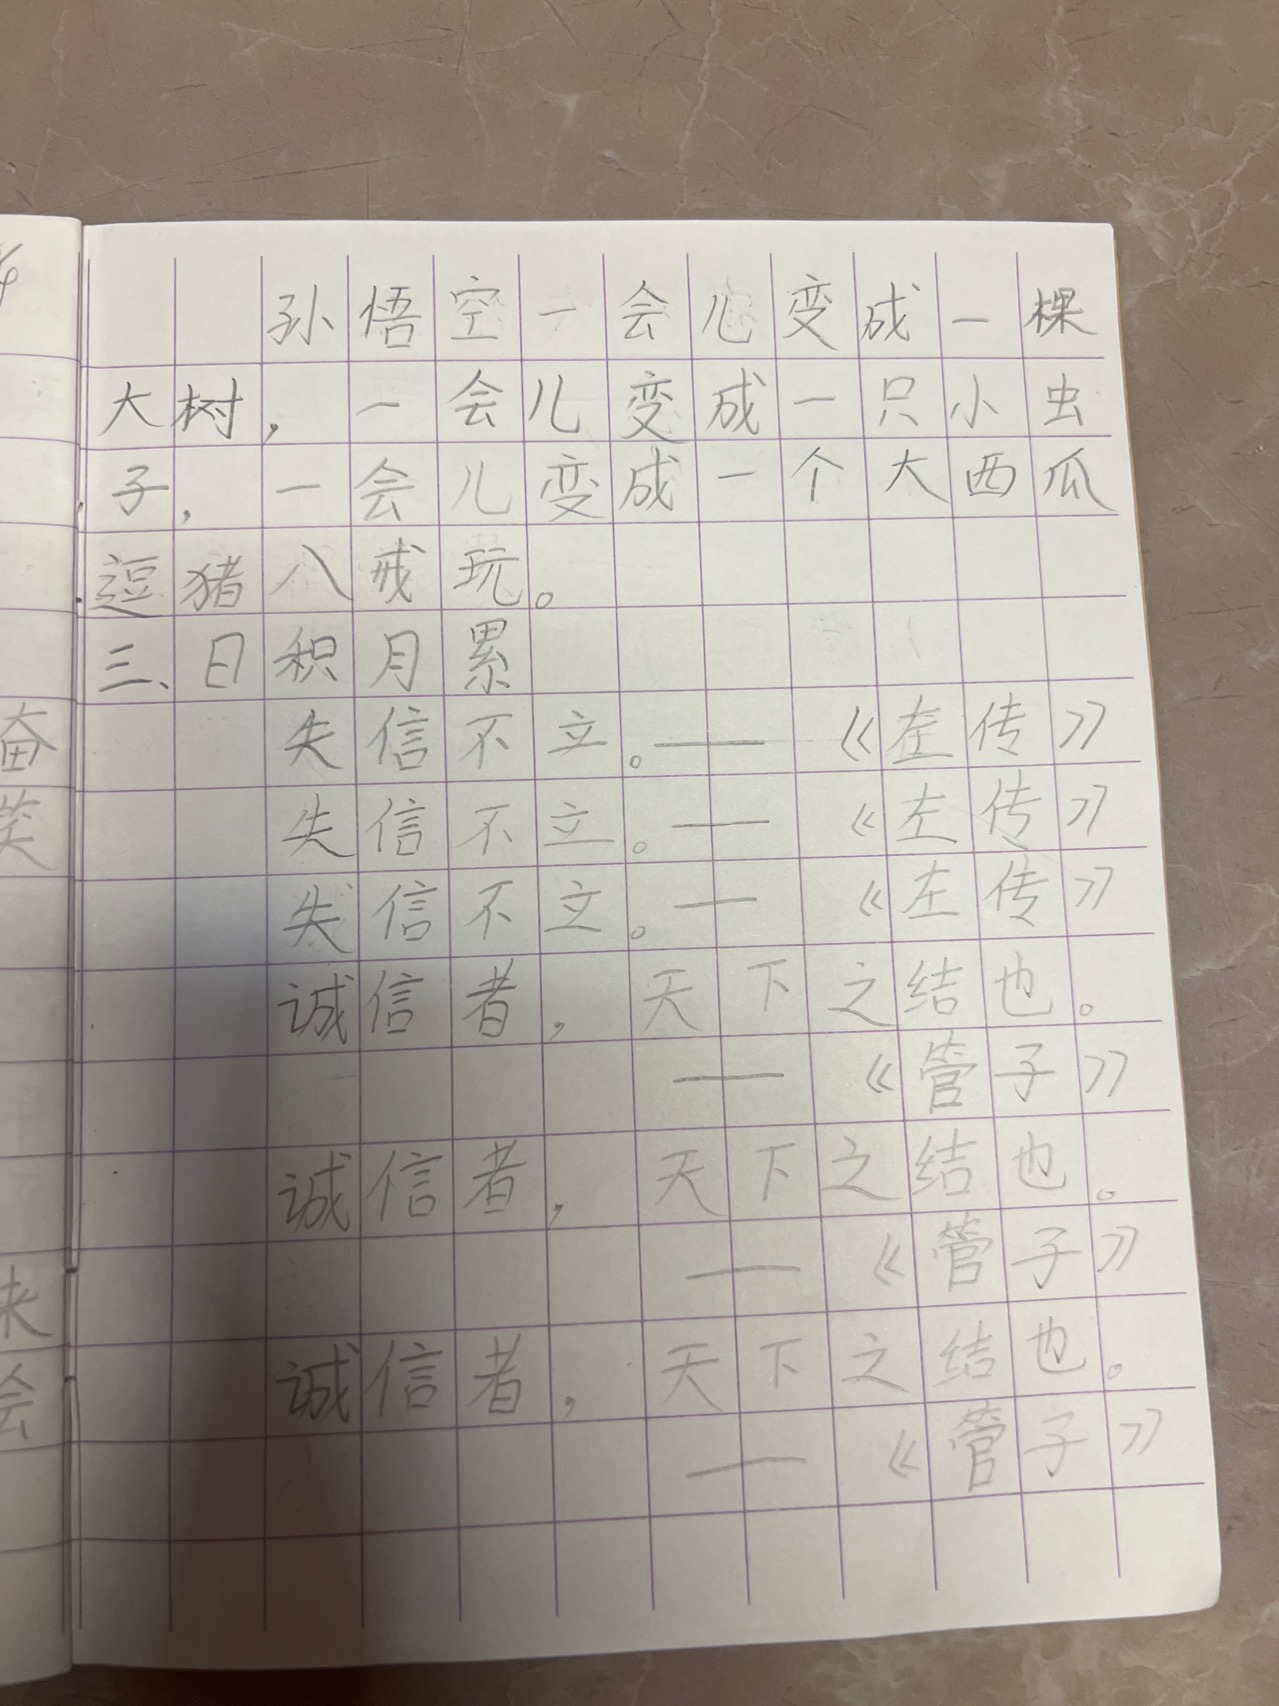 孙悟空一会儿变成一棵
大树，一会儿变成一只小虫
子，一会儿变成一个大西瓜
逗猪八戒玩。
三、日积月累
失信不立。——《左传》
失信不立。——《左传》
失信不立。——《左传》
诚信者，天下之结也。
——《管子》
诚信者，天下之结也。
——《管子》
诚信者，天下之结也。
——《管子》
奋
笑
来
会